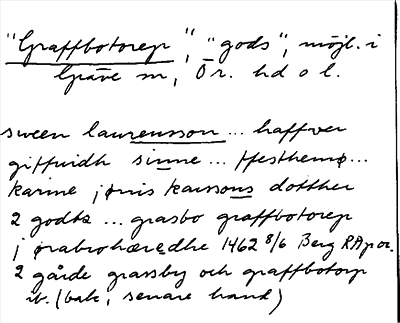 "Graffbotorp", "gods", möjl. i
Gräve sn, Ör. hd o l.
sween laurensson ... haffver
giffuidh sinne ... ffesthemø ...
karine jønis karssons dotther
2 godtz ... grasbo graffbotorp
j ørabrohæredhe 1462 8/6 Berg RAp or.
2 gårde grassby och graffbotorp
ib. (bak, senare hand)